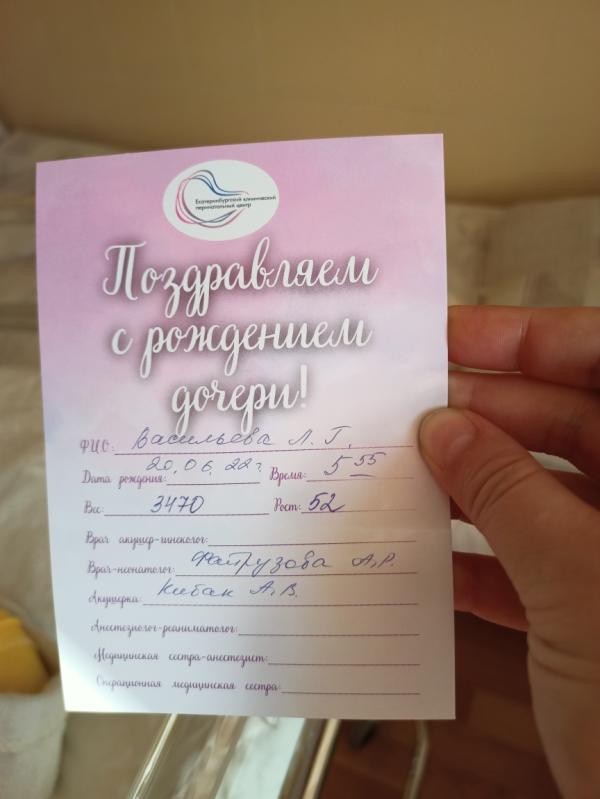 Екатеринбургский клинический
перинатальный центр
Поздравляем
с рождением
дочери!
ФИО: Васильева Л. Г.
Дата рождения: 20.06.22г. Время: 5 55
Вес: 3470 Рост: 52
Врач акушер-гинеколог:
Врач-неонатолог: Файрузова А.Р.
Акушерка: Кибак А.В.
Анестезиолог-реаниматолог:
Медицинская сестра-анестезист:
Операционная медицинская сестра: